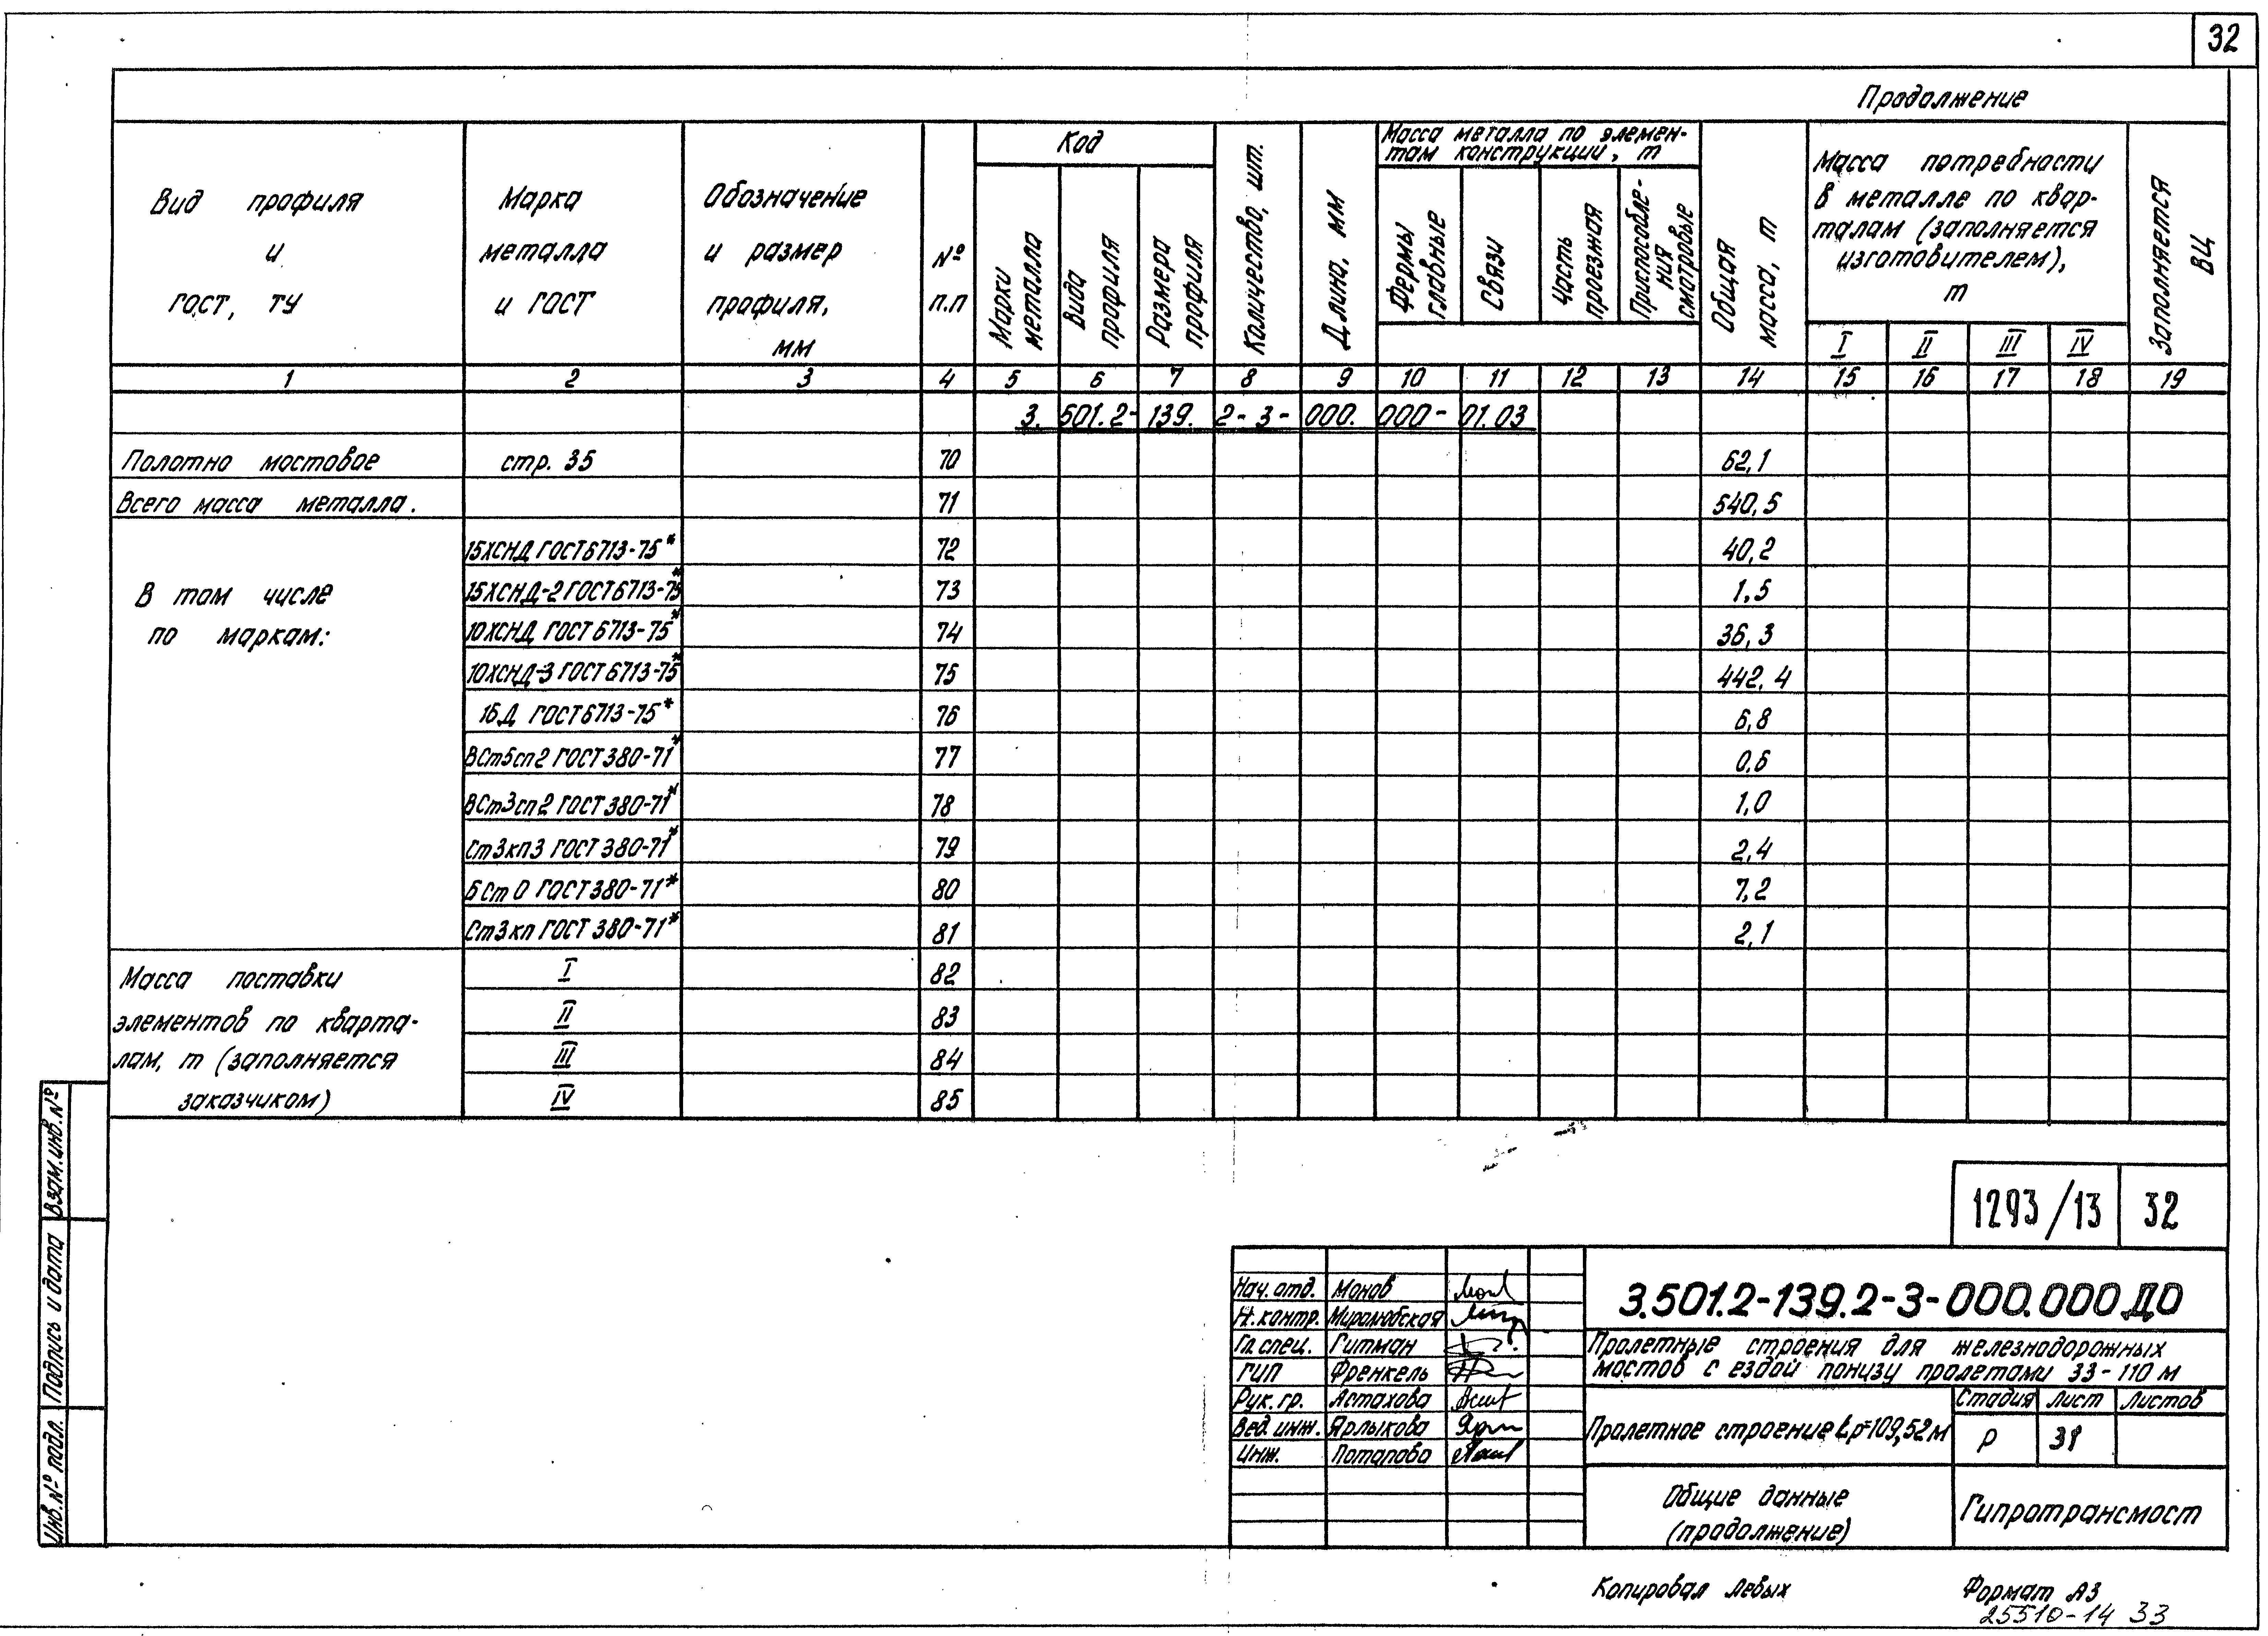 32
Продолжение
Вид профиля
и
гост, ту
Марка
металла
и ГОСТ
Обозначение
и размер
профиля,
мм
№
п.п
Код
Марки металла
Вида профиля
Размера профиля
Количество, шт.
Длина, мм
Масса металла по элемен-
там конструкции, т
Фермы главные
Связи
Часть проезжая
Приспособле-
ния
смотровые
Общая масса, т
Масса потребности
в металле по квар-
талам (заполняется
изготовителем),
т
I II III IV
Заполняется ВЦ
1 2 3 4 5 6 7 8 9 10 11 12 13 14 15 16 17 18 19
3. 501.2- 139. 2-3- 000. 000- 01.03
Полотно мостовое стр. 35 70 62,1
Всего масса металла. 71 540,5
В том числе
по маркам:
15ХСНД ГОСТ6713-75* 72 40,2
15ХСНД-2 ГОСТ6713-75* 73 1,5
10ХСНД ГОСТ6713-75* 74 36,3
10ХСНД-3 ГОСТ6713-75* 75 442,4
16Д ГОСТ6713-75* 76 6,8
ВСт5сп2 ГОСТ380-71* 77 0,6
ВСт3сп2 ГОСТ380-71* 78 1,0
Ст3кп3 ГОСТ380-71* 79 2,4
БСт0 ГОСТ380-71* 80 7,2
Ст3кп ГОСТ380-71* 81 2,1
Масса поставки
элементов по кварта-
лам, т (заполняется
заказчиком)
I 82
II 83
III 84
IV 85
Взам.инв.№
Подпись и дата
Инв.№ подл.
1293/13 32
Нач. отд. Монов
Н. контр. Миролюбская
Гл. спец. Гитман
ГИП Френкель
Рук. гр. Астахова
Вед. инж. Ярлыкова
Инж. Потапова
3.501.2-139.2-3-000.000 ДО
Пролетные строения для железнодорожных
мостов с ездой понизу пролетами 33-110 м
Пролетное строение Lр=109,52м
Стадия Лист Листов
Р 31
Общие данные
(продолжение)
Гипротрансмост
Копировал Левых
Формат А3
25510-14 33